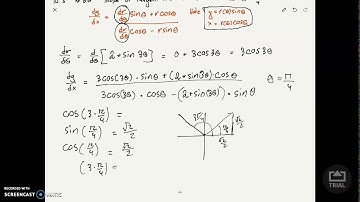 dy/dx = (dr/dθ sinθ + r cosθ) / (dr/dθ cosθ − r sinθ)
Note y = r(θ) sinθ
x = r(θ) cosθ
dr/dθ = d/dθ [2 + sin 3θ] = 0 + 3cos3θ = 3cos3θ
dy/dx = (3cos(3θ) · sinθ + (2+sin3θ) · cosθ) / (3cos(3θ) · cosθ − (2+sin3θ) · sinθ) θ = π/4
cos(3·π/4) =
sin(π/4) = √2/2
cos(π/4) = √2/2
(3·π/4) =
3π/4
π/4
√2/2
√2/2
RECORDED WITH
SCREENCAST MATIC
TRIAL